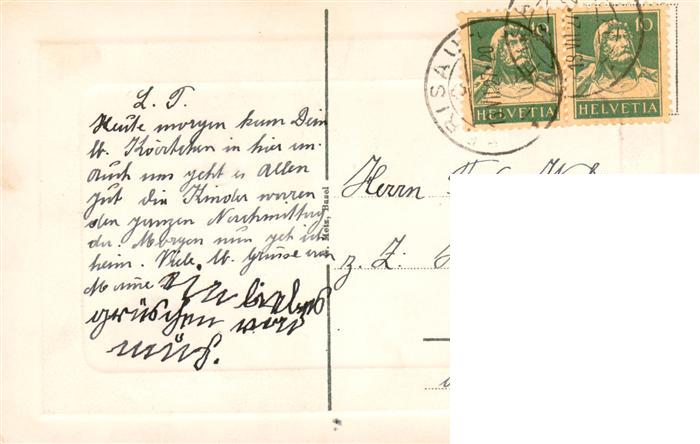 L. T.
Heute morgen kam Dein
lb. Kärtchen in hier an.
Auch uns geht es allen
gut die Kinder waren
den ganzen Nachmittag
da. Morgen nun geh ich
heim. Viele lb. Grüsse von
Mame Ein liebes
grüschen von
müs.
Metz, Basel
HERISAU
10
HELVETIA
10
HELVETIA
Herrn
z. Z.